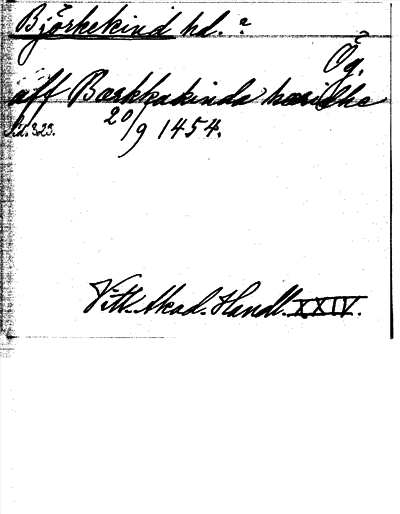 Björkekind hd.?
Ög.
aff Bærkkakinda hæridhe
Sid. 323. 20/9 1454.
Vitt. Akad. Handl. XXIV.